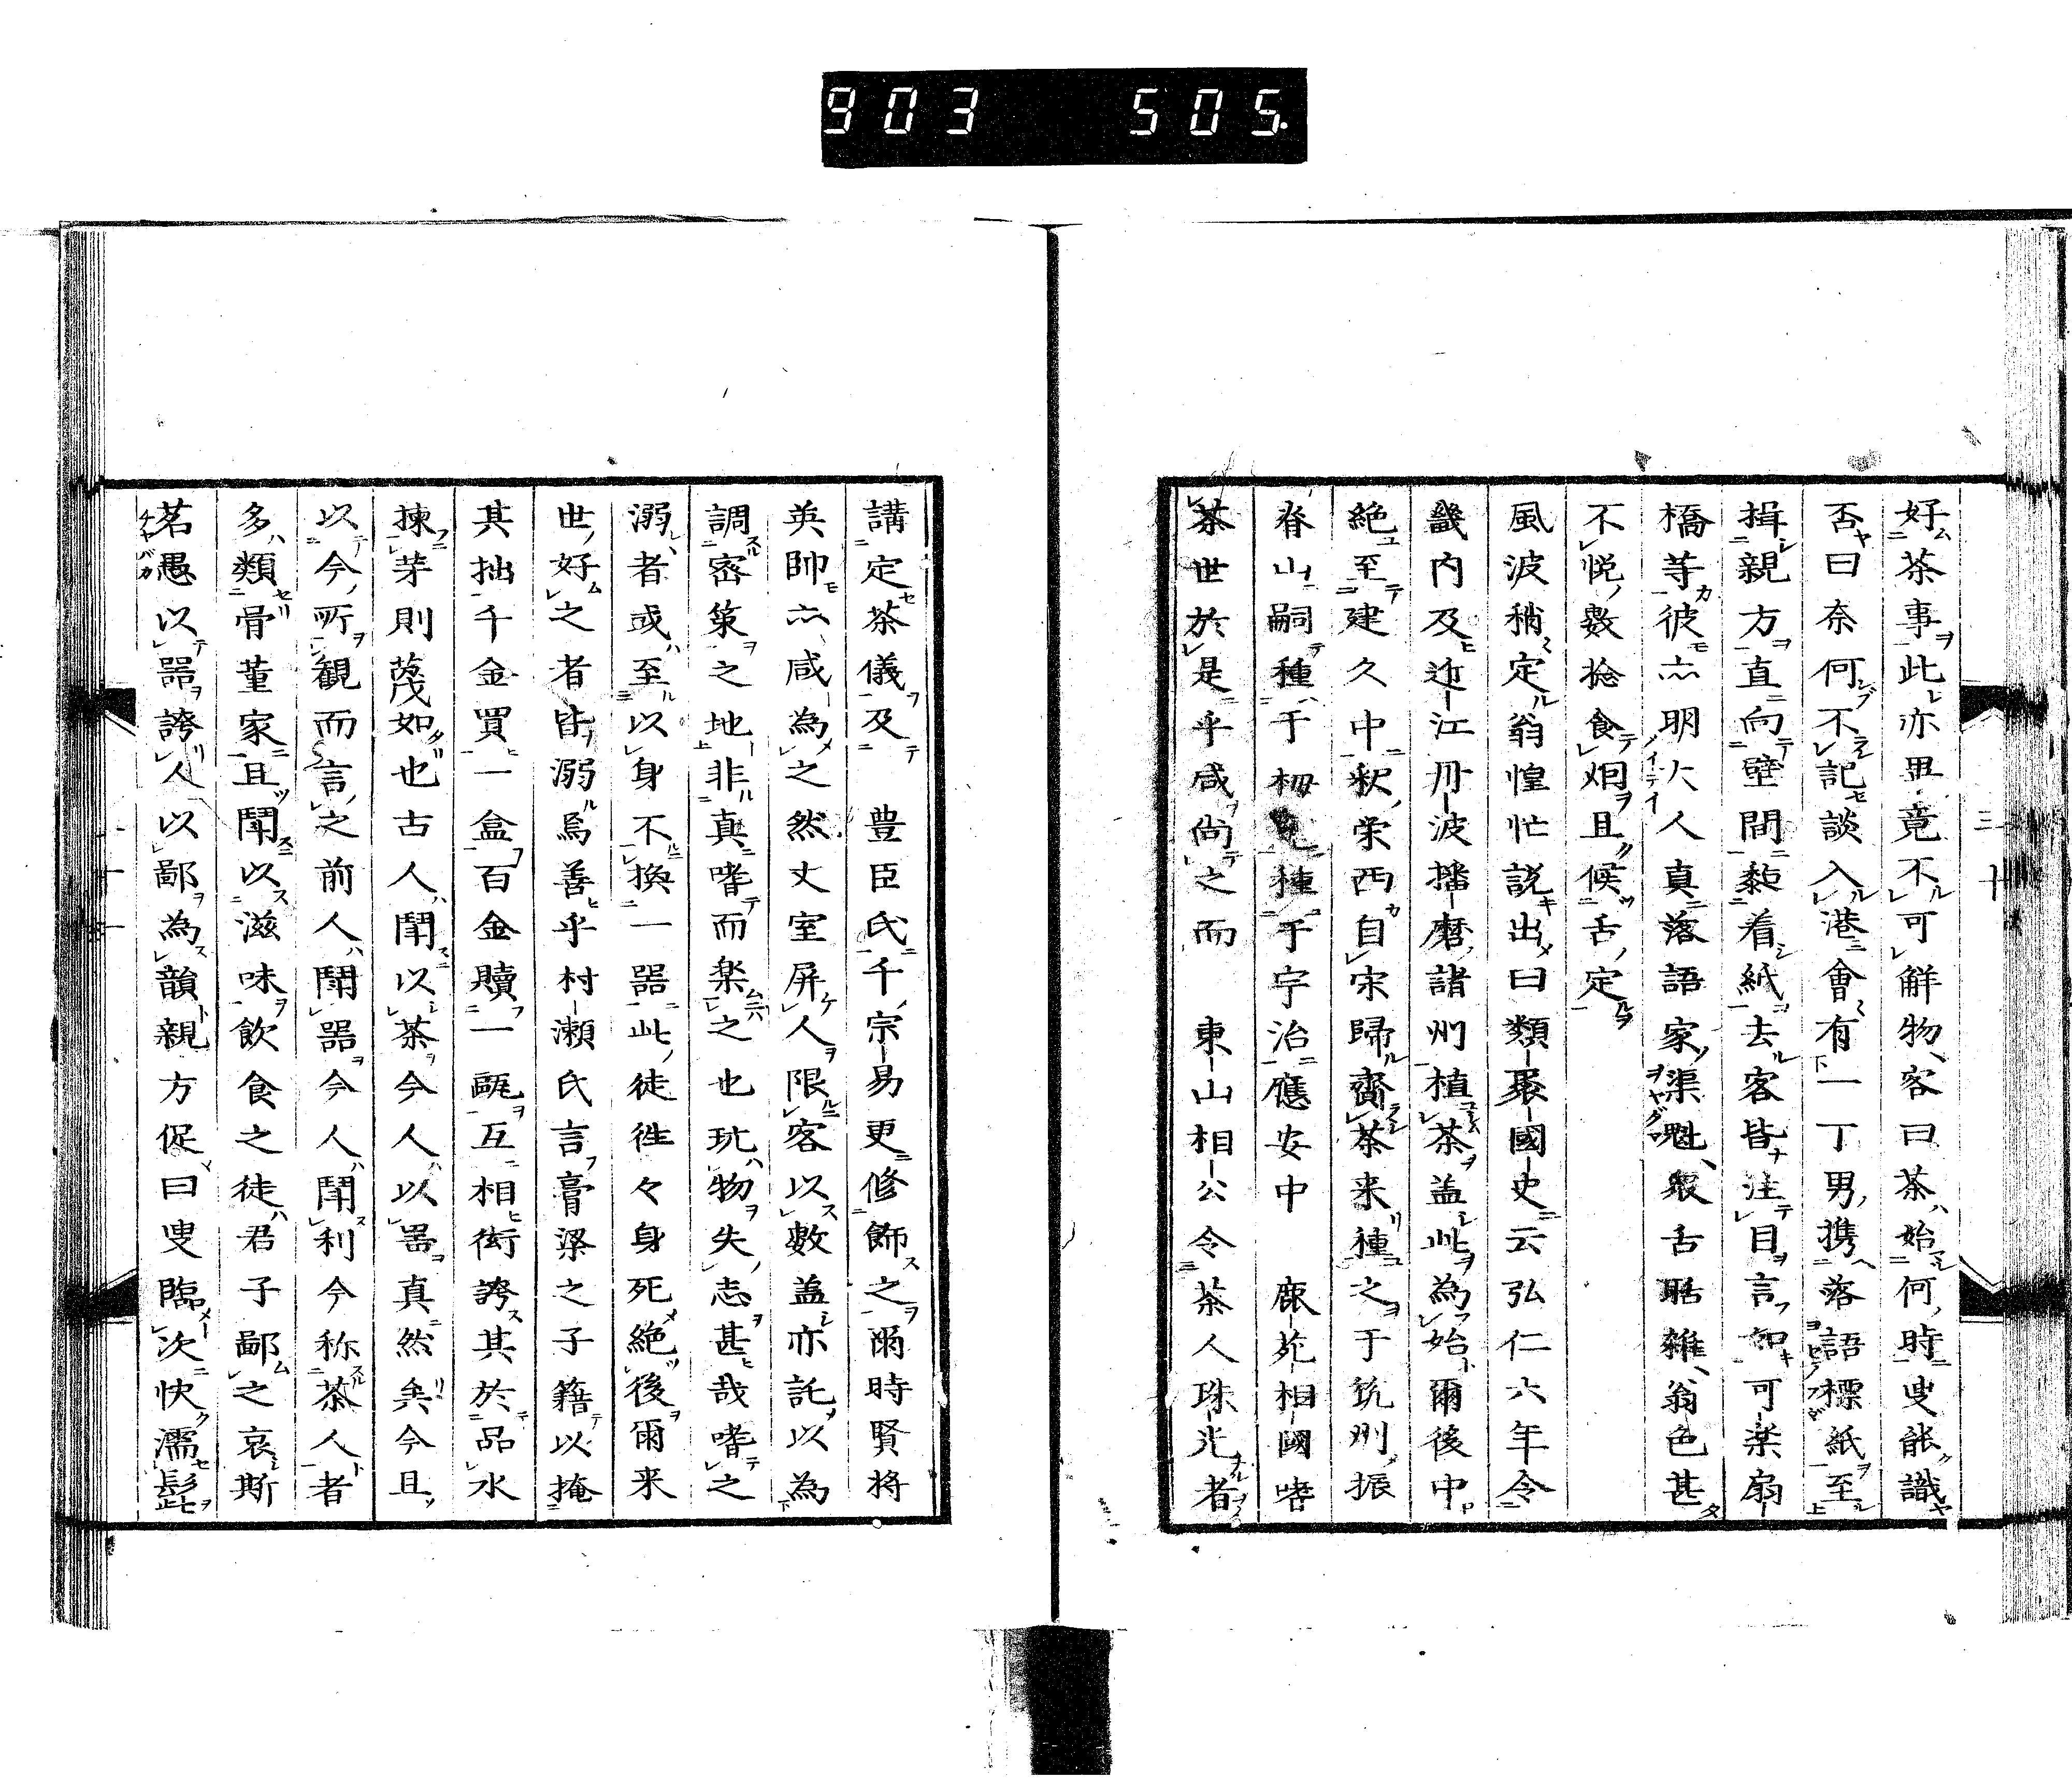 903 505
好茶事此亦畢竟不可解物客曰茶始何時叟能識
否曰奈何不記談入港會有一丁男携落語標紙至
揖親方直向壁間黏着紙去客皆注目言知可楽扇
橋等彼亦明大人真落語家渠魁衆舌聒雑翁色甚
不悦數捻食烟且候舌定
風波稍定翁惶忙説出曰類聚國史云弘仁六年令
畿内及近江丹波播磨諸州植茶盖此為始爾後中
絶至建久中釈栄西自宋歸齎茶来種之于筑州振
脊山嗣種于栂尾種于宇治應安中 鹿苑相國嗜
茶世於是乎咸尚之而 東山相公令茶人珠光者
講定茶儀及 豊臣氏千宗易更修飾之爾時賢将
英帥亦咸為之然丈室屏人限客以數盖亦託以為
調密策之地非真嗜而楽之也玩物失志甚哉嗜之
溺者或至以身不換一器此徒徃々身死絶後爾来
世好之者皆溺焉善乎村瀬氏言膏粱之子籍以掩
其拙千金買一盒百金贖一甌互相衒誇其於品水
揀芽則蔑如也古人鬪以茶今人以器真然矣今且
以今所観而言之前人鬪器今人鬪利今称茶人者
多類骨董家且鬪以滋味飲食之徒君子鄙之哀斯
茗愚以器誇人以鄙為韻親方促曰叟臨次快濡髭